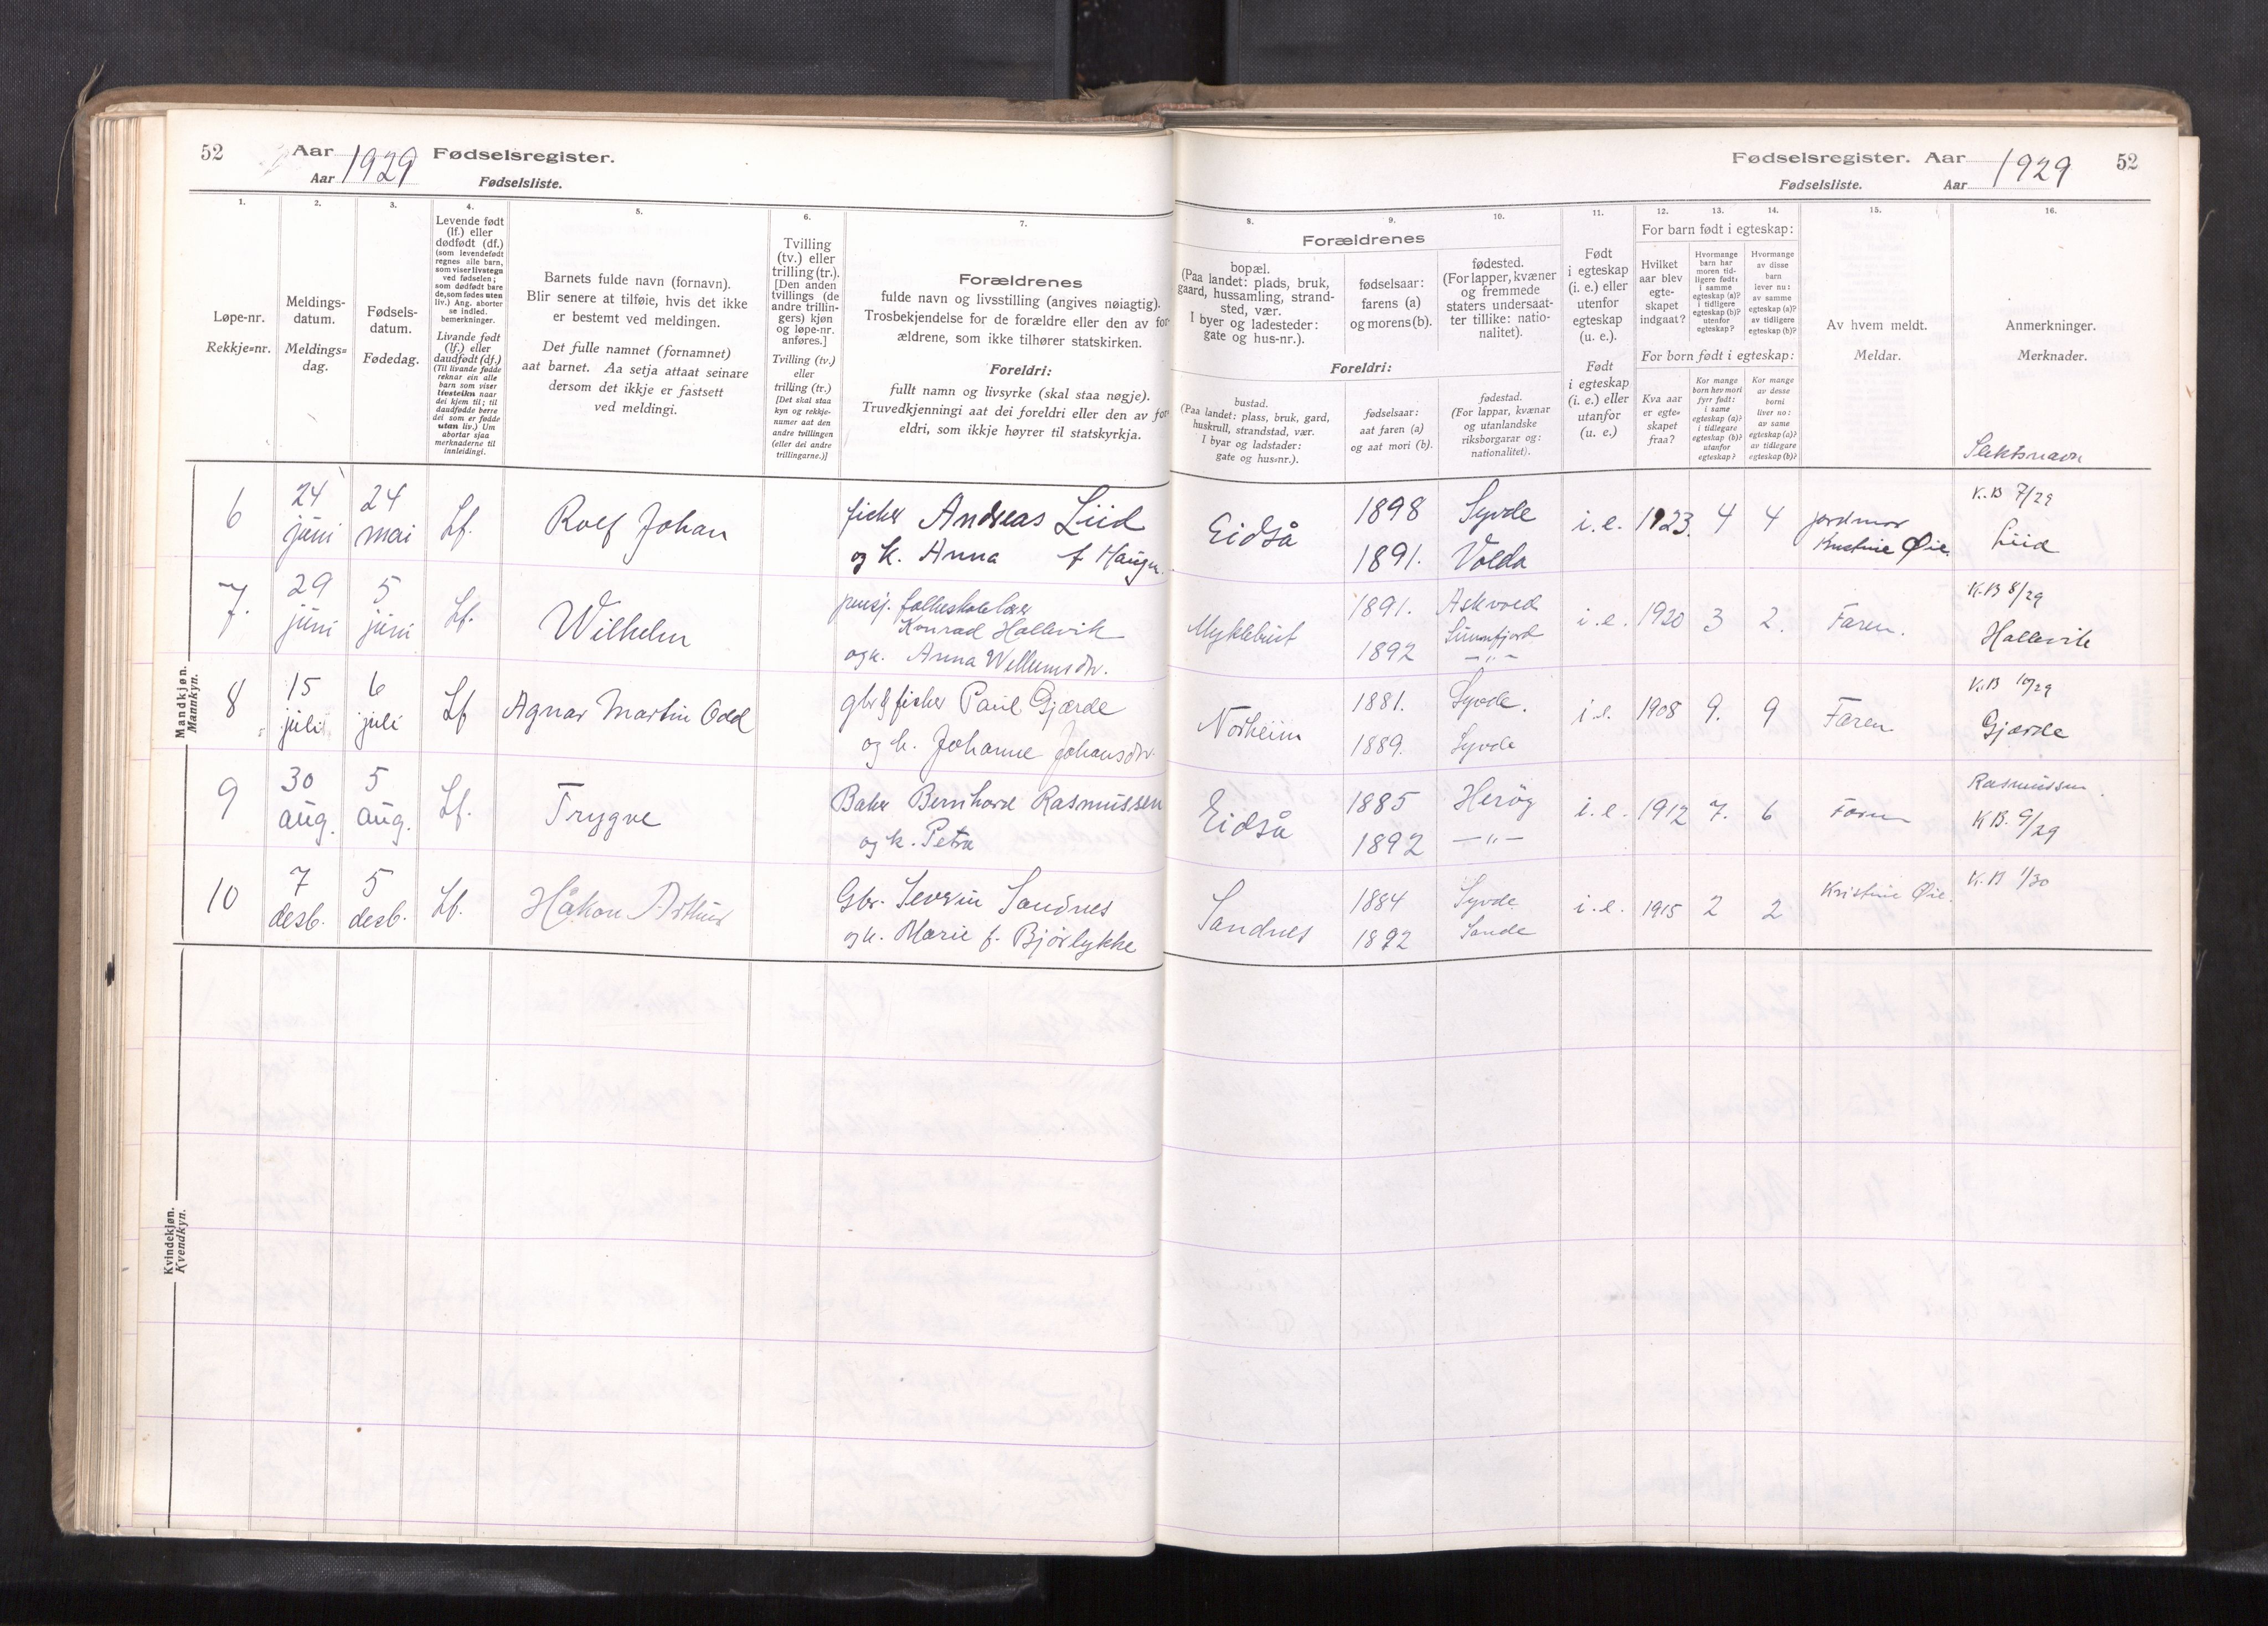 52
Aar 1929 Fødselsregister.
Aar Fødselsliste.
Fødselsregister. Aar 1929 52
Fødselsliste. Aar
1.
Løpe-nr.
Rekkje=nr.
2.
Meldings-
datum.
Meldings=
dag.
3.
Fødsels-
datum.
Fødedag.
4.
Levende født
(lf.) eller
dødfødt (df.)
(som levendefødt
regnes alle barn,
som viser livstegn
ved fødselen;
som dødfødt bare
de, som fødes uten
liv.) Ang. aborter
se indled.
bemerkninger.
Livande født
(lf.) eller
daudfødt (df.)
(Til livande fødde
reknar ein alle
barn som viser
livsteikn naar
dei kjem til; til
daudfødde berre
dei som er fødde
utan liv.) Um
abortar sjaa
merknaderne til
innleidingi.
5.
Barnets fulde navn (fornavn).
Blir senere at tilføie, hvis det ikke
er bestemt ved meldingen.
Det fulle namnet (fornamnet)
aat barnet. Aa setja attaat seinare
dersom det ikkje er fastsett
ved meldingi.
6.
Tvilling
(tv.) eller
trilling (tr.).
[Den anden
tvillings (de
andre trillin-
gers) kjøn
og løpe-nr.
anføres.]
Tvilling (tv.)
eller
trilling (tr.)
[Det skal staa
kyn og rekkje-
numer aat den
andre tvillingen
(eller dei andre
trillingarne.)]
7.
Forældrenes
fulde navn og livsstilling (angives nøiagtig).
Trosbekjendelse for de forældre eller den av for-
ældrene, som ikke tilhører statskirken.
Foreldri:
fullt namn og livsyrke (skal staa nøgje).
Truvedkjenningi aat dei foreldri eller den av for-
eldri, som ikkje høyrer til statskyrkja.
Forældrenes
8.
bopæl.
(Paa landet: plads, bruk,
gaard, hussamling, strand-
sted, vær.
I byer og ladesteder:
gate og hus-nr.).
9.
fødselsaar:
farens (a)
og morens (b).
10.
fødested.
(For lapper, kvæner
og fremmede
staters undersaat-
ter tillike: natio-
nalitet).
Foreldri:
bustad.
(Paa landet: plass, bruk, gard,
huskrull, strandstad, vær.
I byar og ladstader:
gate og hus=nr.).
fødselsaar:
aat faren (a)
og aat mori (b).
fødestad.
(For lappar, kvænar
og utanlandske
riksborgarar og:
nationalitet).
11.
Født
i egteskap
(i. e.) eller
utenfor
egteskap
(u. e.).
Født
i egteskap
(i. e.) eller
utanfor
(u. e.)
12. 13. 14.
For barn født i egteskap:
Hvilket
aar blev
egte-
skapet
indgaat?
Hvormange
barn har
moren tid-
ligere født:
i samme
egteskap (a)?
i tidligere
egteskap (b)?
utenfor
egteskap?
Hvormange
av disse
barn
lever nu:
av samme
egteskap (a)?
av tidligere
egteskap (b)?
For born født i egteskap:
Kva aar
er egte-
skapet
fraa?
Kor mange
born hev mori
fyrr født:
i same
egteskap (a)?
i tidlegare
egteskap (b)?
utanfor
egteskap?
Kor mange
av desse
borni
liver no:
av same
egteskap (a)?
av tidlegare
egteskap (b)?
15.
Av hvem meldt.
Meldar.
16.
Anmerkninger.
Merknader.
Slektsnavn
Mandkjøn.
Mannkyn.
6 24 juni 24 mai Lf. Rolf Johan fisker Andreas Liid Eidså 1898 Syvde i.e. 1923. 4 4 jordmor K.B 7/29
og k. Anna f Haugen 1891. Volda Kristine Øie. Liid
7. 29 juni 5 juni Lf. Wilhelm pensj. folkeskolelærer Myklebust 1891. Askvold i.e. 1920 3 2. Faren. K.B 8/29
Konrad Hallevik Sunnfjord Hallevik
og k. Anna Willumsdtr. 1892 -"-
8 15 juli 6 juli Lf Agnar Martin Odd gbr & fisker Paul Gjærde Norheim 1881. Syvde. i.e. 1908 9. 9 Faren K.B 10/29
og k. Johanne Johansdtr. 1889. Syvde Gjærde
9 30 aug. 5 aug. Lf. Trygve Baker Bernhard Rasmussen Eidså 1885 Herøy i.e. 1912 7. 6 Faren Rasmussen.
og k. Petra 1892 -"- K.B. 9/29
10 7 desb. 5 desb. Lf. Håkon Arthur Gbr. Severin Sandnes Sandnes 1884 Syvde i.e. 1915 2 2 Kristine Øie. K.B 1/30
og k. Marie f. Bjørlykke 1892 Sande
Kvindekjøn.
Kvendkyn.